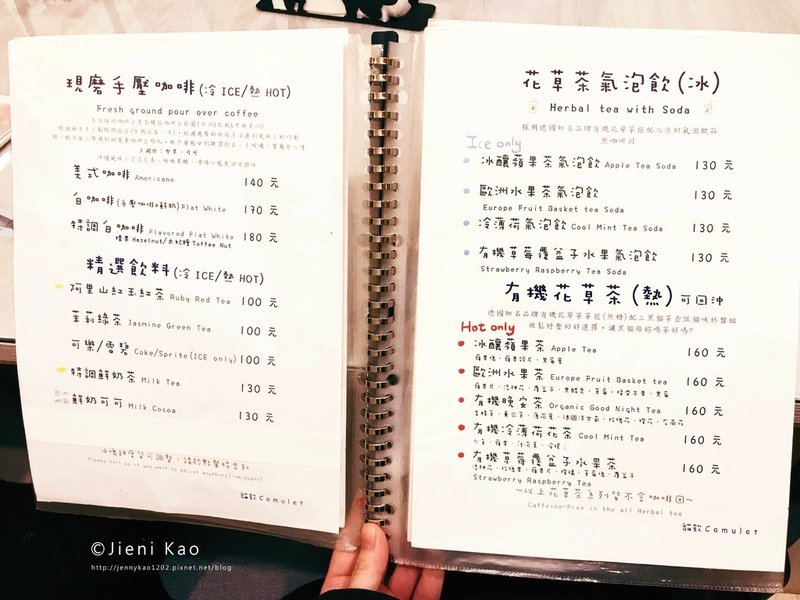 現磨手壓咖啡(冷 ICE/熱 HOT)
Fresh ground pour over coffee
美式咖啡 Americano 140 元
白咖啡(手壓咖啡+鮮奶)Flat White 170 元
特調白咖啡 Flavored Flat White 180 元
榛果 Hazelnut/太妃糖 Toffee Nut
精選飲料(冷 ICE/熱 HOT)
阿里山紅玉紅茶 Ruby Red Tea 100 元
茉莉綠茶 Jasmine Green Tea 100 元
可樂/雪碧 Coke/Sprite(ICE only) 100 元
特調鮮奶茶 Milk Tea 130 元
鮮奶可可 Milk Cocoa 130 元
Please tell us if you want to adjust anything(ice,sugar)
貓飲 Camulet
花草茶氣泡飲(冰)
Herbal tea with Soda
採用德國知名品牌有機花草茶搭配沁涼的氣泡飲品
無咖啡因
Ice only
冰釀蘋果茶氣泡飲 Apple Tea Soda 130 元
歐洲水果茶氣泡飲 130 元
Europe Fruit Basket tea Soda
冷薄荷氣泡飲 Cool Mint Tea Soda 130 元
有機草莓覆盆子水果氣泡飲 130 元
Strawberry Raspberry Tea Soda
有機花草茶(熱)可回沖
Hot only
冰釀蘋果茶 Apple Tea 160 元
歐洲水果茶 Europe Fruit Basket tea 160 元
有機晚安茶 Organic Good Night Tea 160 元
有機冷薄荷花茶 Cool Mint Tea 160 元
有機草莓覆盆子水果茶 160 元
Strawberry Raspberry Tea
～以上花草茶系列皆不含咖啡因～
Caffeine-Free in the all Herbal tea
貓飲 Camulet
©Jieni Kao
http://jennykao1202.pixnet.net/blog